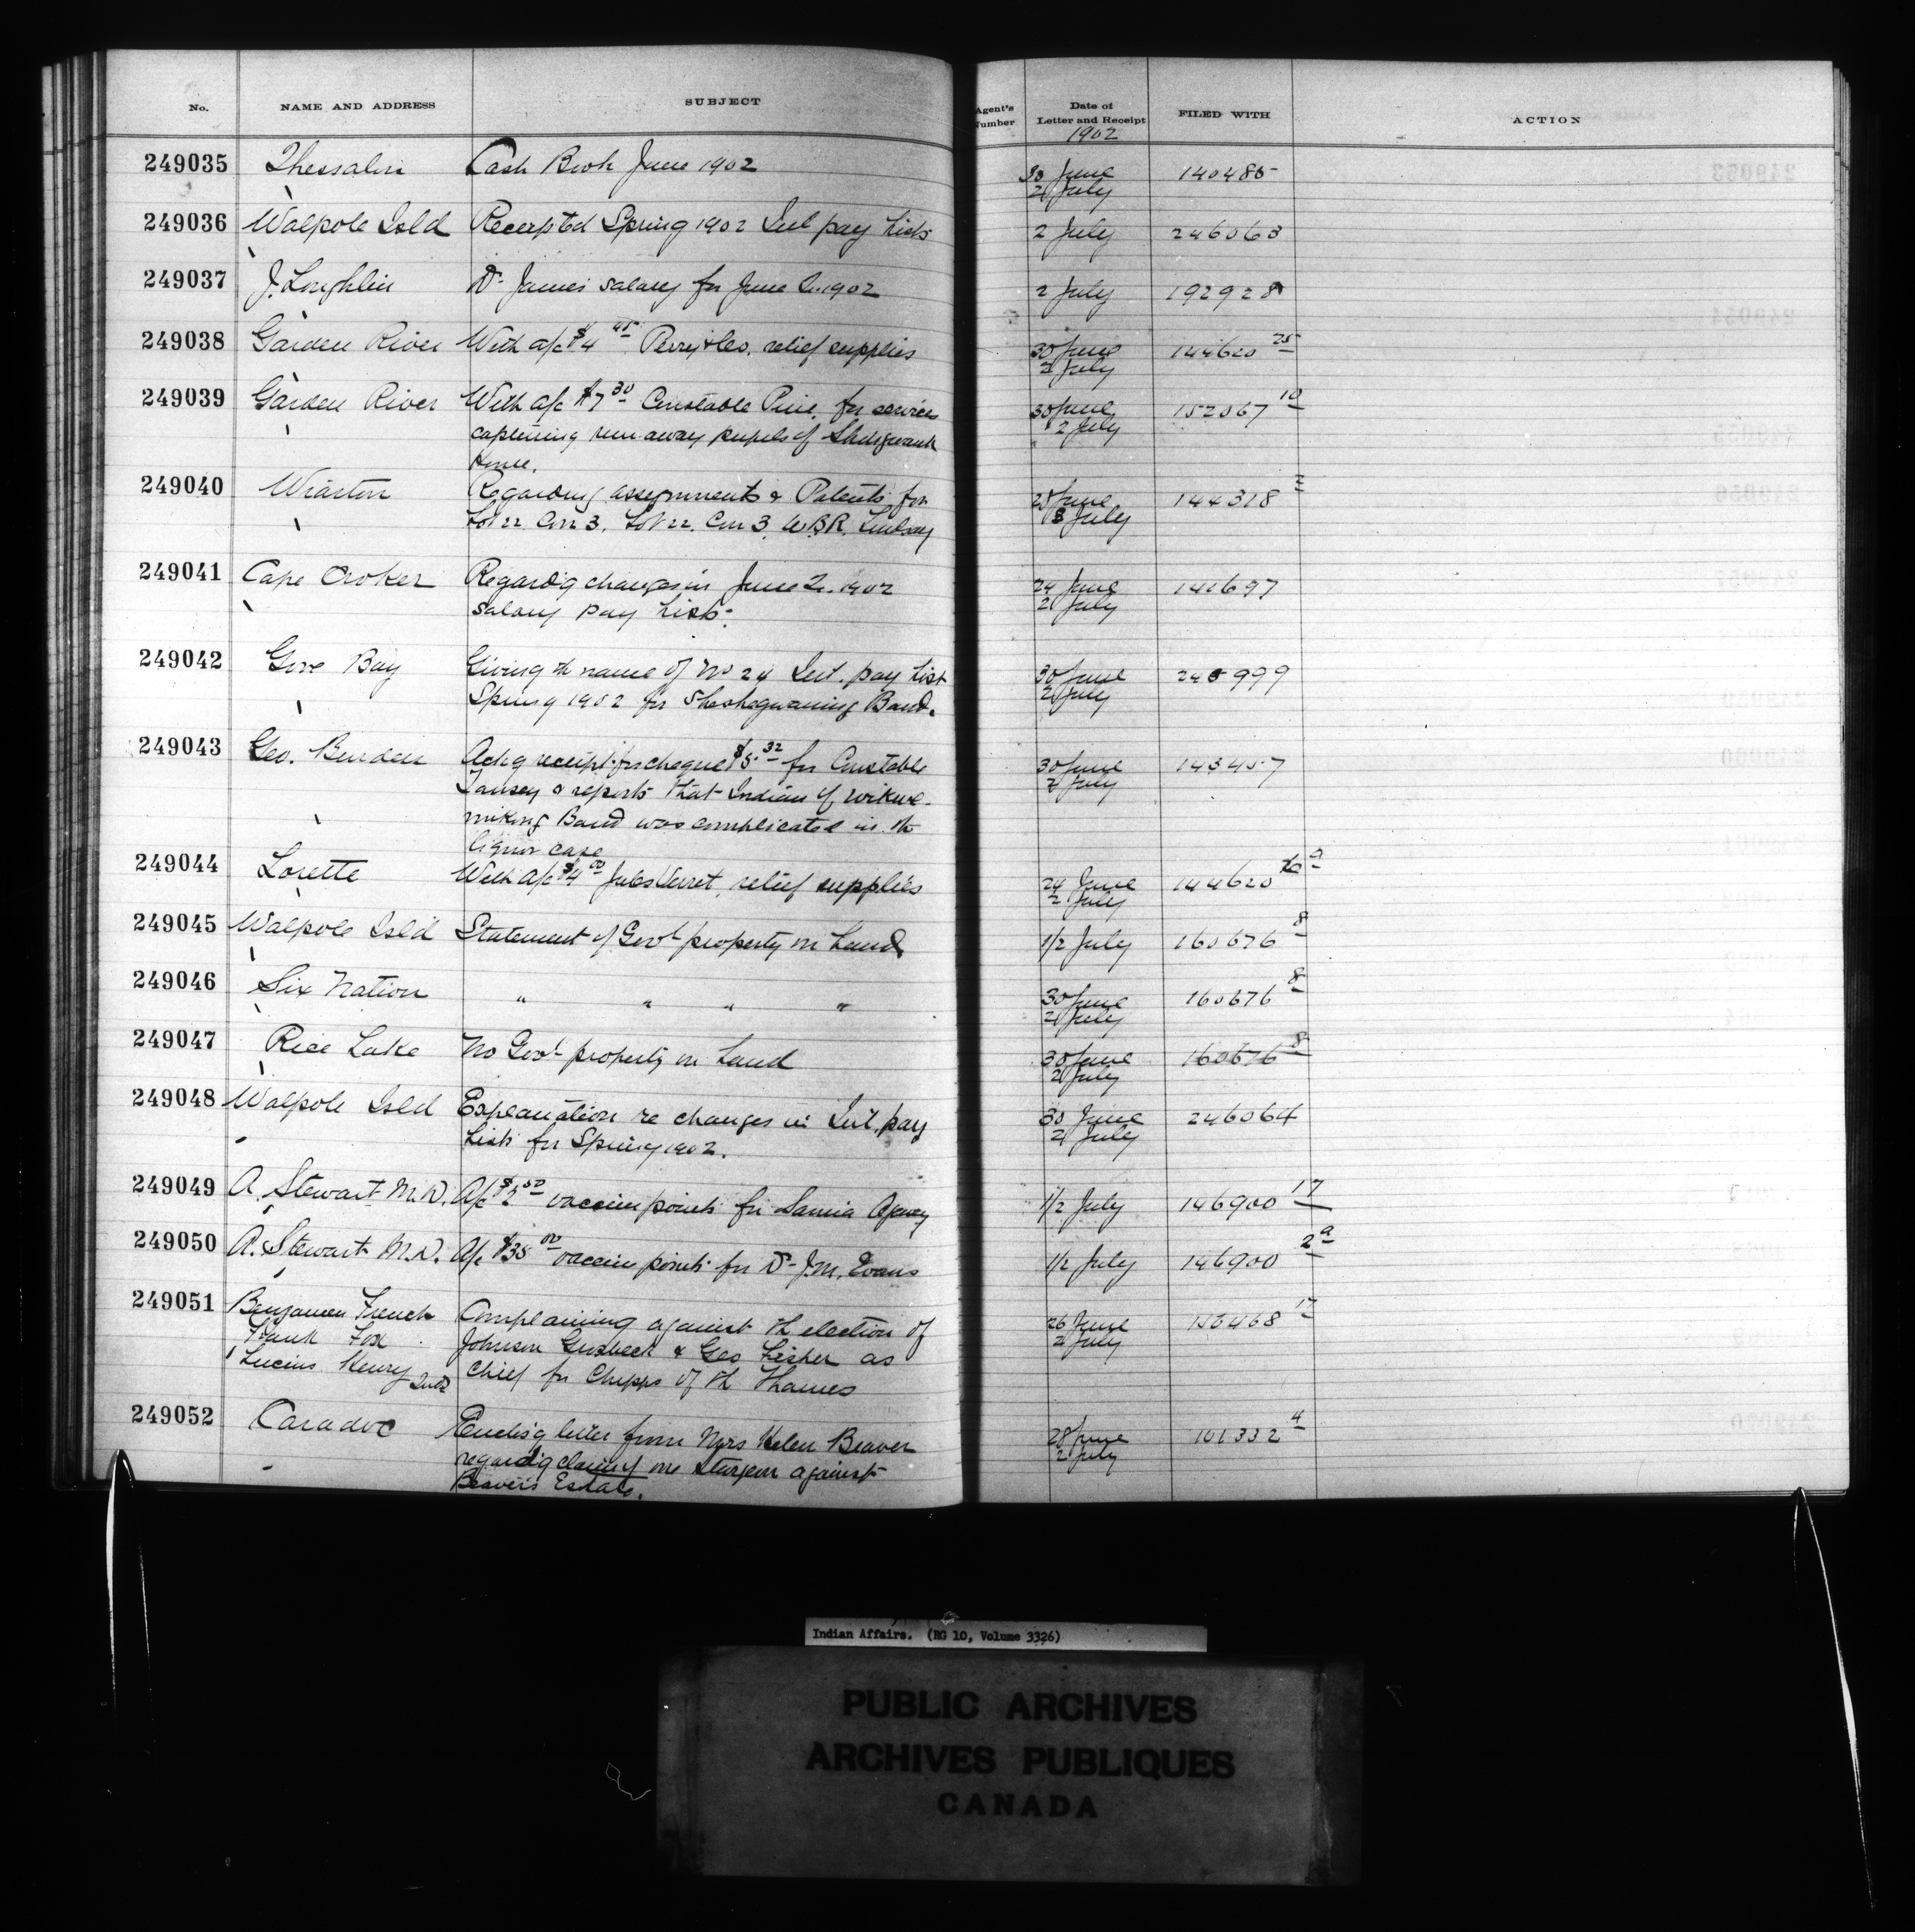 No. NAME AND ADDRESS SUBJECT Agent's Number Date of Letter and Receipt FILED WITH ACTION
1902
249035 Thessalon Cash Book June 1902 30 June 140485
2 July
249036 Walpole Isld Receipted Spring 1902 Int pay lists 2 July 246063
249037 J. Loughlin Dr James salary for June Qr. 1902 2 July 192928
249038 Garden River With a/c $4 45 Perry & Co. relief supplies 30 June 144620 25
2 July
249039 Garden River With a/c $7 30 Constable Pine for services 30 June 152067 10
capturing run away pupils of Shingwauk 2 July
Home.
249040 Wiarton Regarding assignments & Patents for 28 June 144318 2
Lot 22 Con 3, Lot 22, Con 3, W.B.R. Lindsay 2 July
249041 Cape Croker Regard'g changes in June Qr. 1902 24 June 141697
salary pay lists. 2 July
249042 Gore Bay Giving th name of No 24 Int. pay list 30 June 245999
Spring 1902 for Sheshegwaning Band. 2 July
249043 Geo. Burden Ack'g receipt for cheque $5 32 for Constable 30 June 143457
Tansey & reports that Indian of Wikwe- 2 July
mikong Band was complicated in th
liquor case
249044 Lorette With a/c $4 00 Jules Verret, relief supplies 24 June 144620
2 July
249045 Walpole Isld Statement of Govt property on hand 1/2 July 160676 8
249046 Six Nation " " " " 30 June 160676 8
2 July
249047 Rice Lake No Govt property on hand 30 June 160676 8
2 July
249048 Walpole Isld Explanation re changes in Int. pay 30 June 246064
lists for Spring 1902. 2 July
249049 A. Stewart M.D. A/c $2 50 vaccine points for Sarnia Agency 1/2 July 146900 17
249050 A. Stewart M.D. A/c $35 00 vaccine points for Dr J.M. Evans 1/2 July 146900 2a
249051 Benjamin French Complaining against th election of 26 June 156468 17
Frank Fox Johnson Grosbeck & Geo Fisher as 2 July
Lucius Henry 2nd Chief for Chipps of th Thames
249052 Caradoc Enclos'g letter from Mrs Helen Beaver 28 June 101332 4
regard'g claim of one Sturgeon against 2 July
Beaver's Estate.
Indian Affairs. (RG 10, Volume 3326)
PUBLIC ARCHIVES
ARCHIVES PUBLIQUES
CANADA